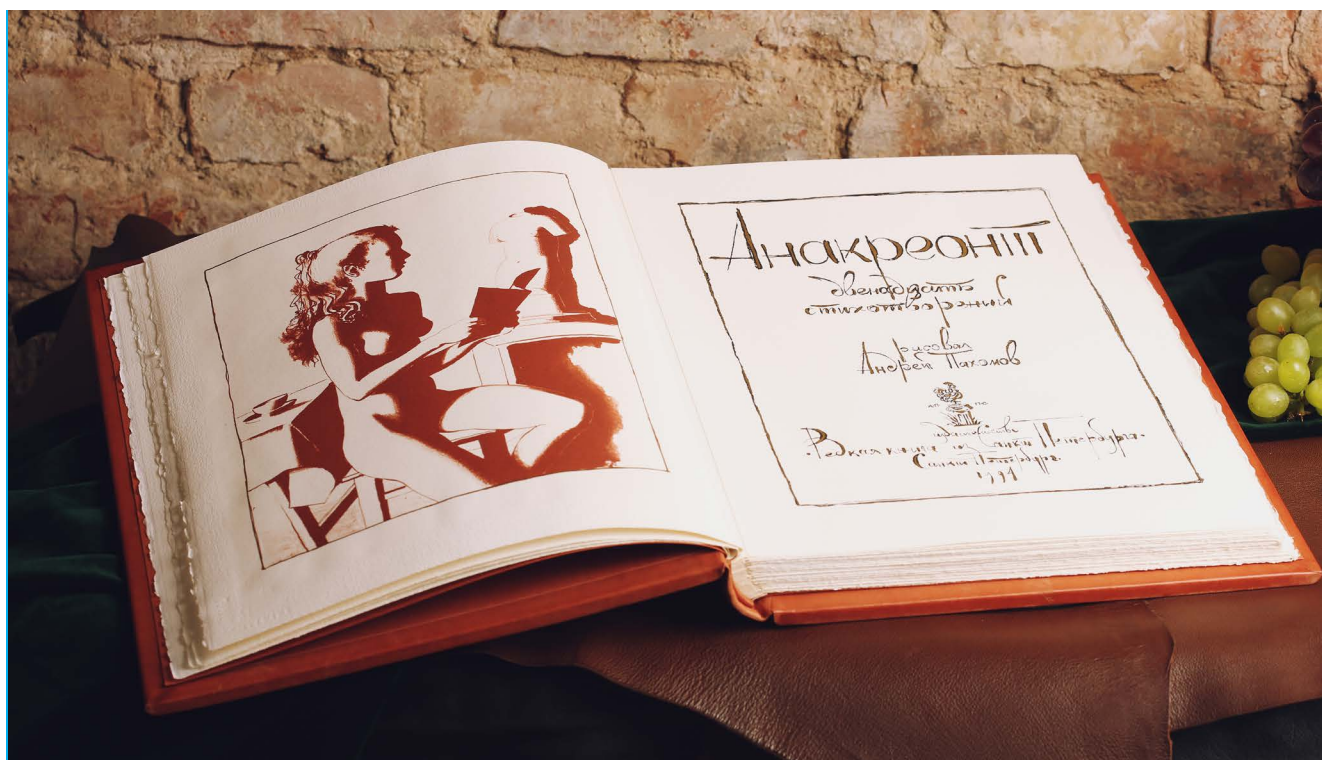 Анакреонт
двенадцать
стихотворений
рисовал
Андрей Пахомов
издательство
Редкая книга из Санкт Петербурга
Санкт Петербург